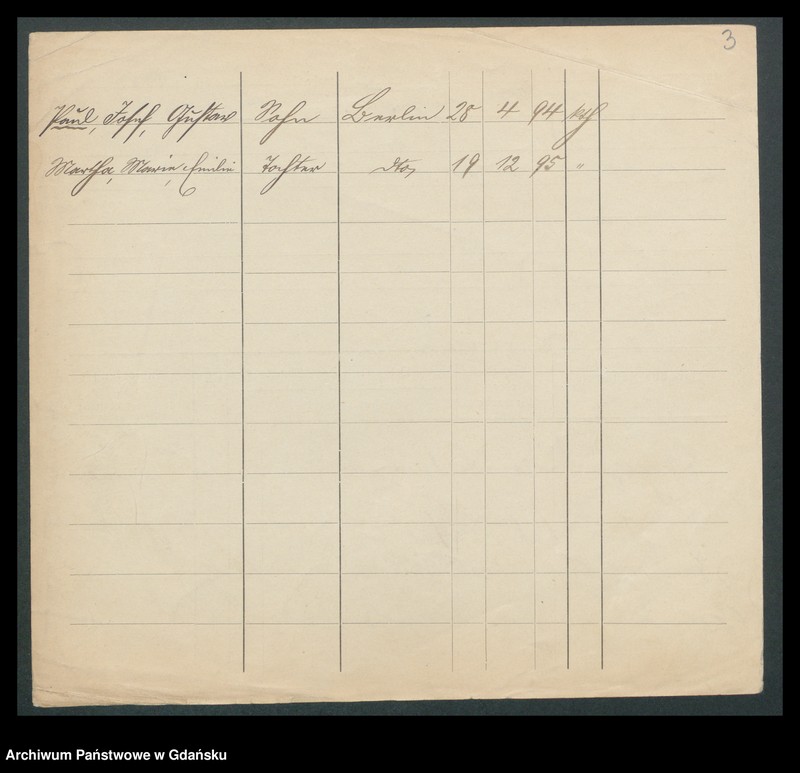 3
Paul, Josef, Gustav Sohn Berlin 28 4 94 kth
Martha, Marie, Emilie Tochter dto, 19 12 95 "
Archiwum Państwowe w Gdańsku